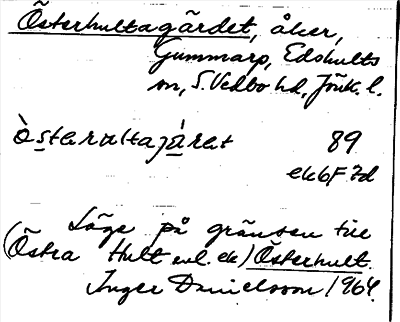 Österhultagärdet, åker,
Gummarp, Edshults
sn, S. Vedbo hd, Jönk. l.
òsteraltajä́ret 89
ek 6F 7d
Läge på gränsen till
(Östra Hult enl. ek) Österhult.
Inger Danielsson 1964.